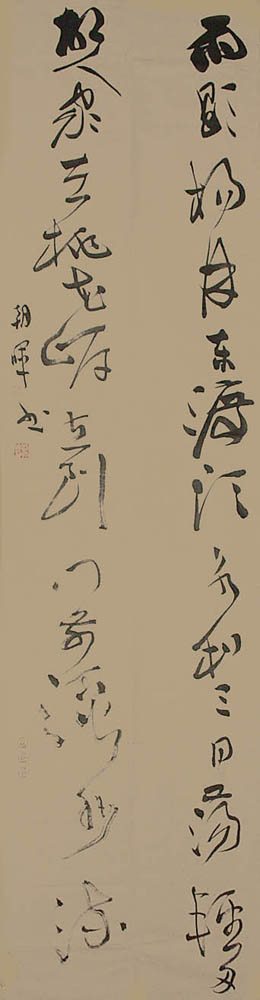 雨歇楊林東渡頭永和三日蕩輕舟
故人家在桃花岸直到門前溪水流
朝暉书